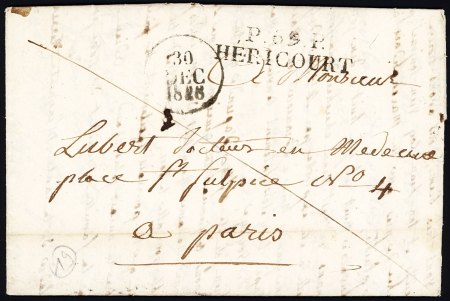 P. 69 P.
HERICOURT
30
DEC
1828
A Monsieur
Lubert Docteur en Medecine
place St Sulpice No 4
a paris
19